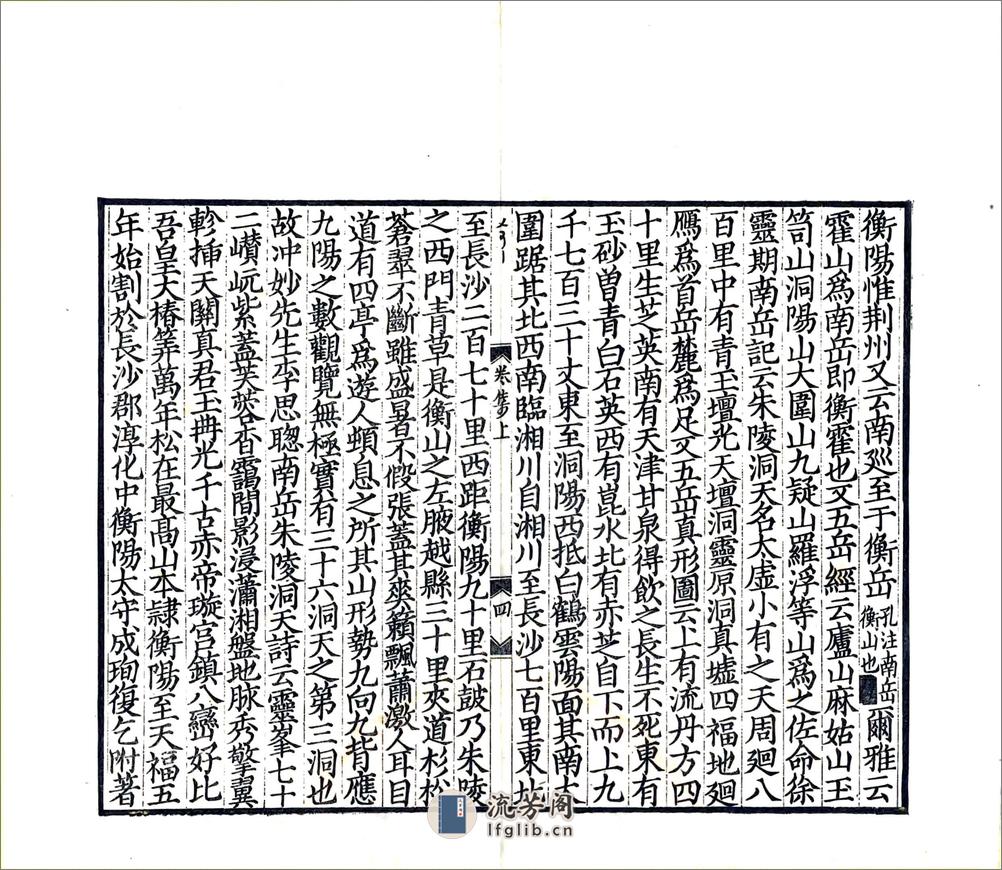 衡陽惟荆州又云南巡至于衡岳孔注南岳衡山也爾雅云
霍山爲南岳即衡霍也又五岳經云廬山麻姑山玉
笥山洞陽山大圍山九疑山羅浮等山爲之佐命徐
靈期南岳記云朱陵洞天名太虛小有之天周廻八
百里中有青玉壇光天壇洞靈原洞真墟四福地廻
鴈爲首岳麓爲足又五岳真形圖云上有流丹方四
十里生芝英南有天津甘泉得飲之長生不死東有
玉砂曽青白石英西有崑水北有赤芝自下而上九
千七百三十丈東至洞陽西抵白鶴雲陽面其南大
圍踞其北西南臨湘川自湘川至長沙七百里東北
卷集上
四
至長沙二百七十里西距衡陽九十里石鼓乃朱陵
之西門青草是衡山之左腋越縣三十里夾道杉松
蒼翠不斷雖盛暑不假張蓋其爽籟飄蕭激人耳目
道有四亭爲遊人頓息之所其山形勢九向九背應
九陽之數觀覽無極實有三十六洞天之第三洞也
故冲妙先生李思聦南岳朱陵洞天詩云靈峯七十
二巑岏紫蓋芙蓉杳靄間影浸瀟湘盤地脉秀擎翼
軫揷天關真君玉冊光千古赤帝璇宫鎮八巒好比
吾皇天椿筭萬年松在最髙山本隷衡陽至天福五
年始割於長沙郡淳化中衡陽太守成珣復乞附著
流芳阁
lfglib.cn